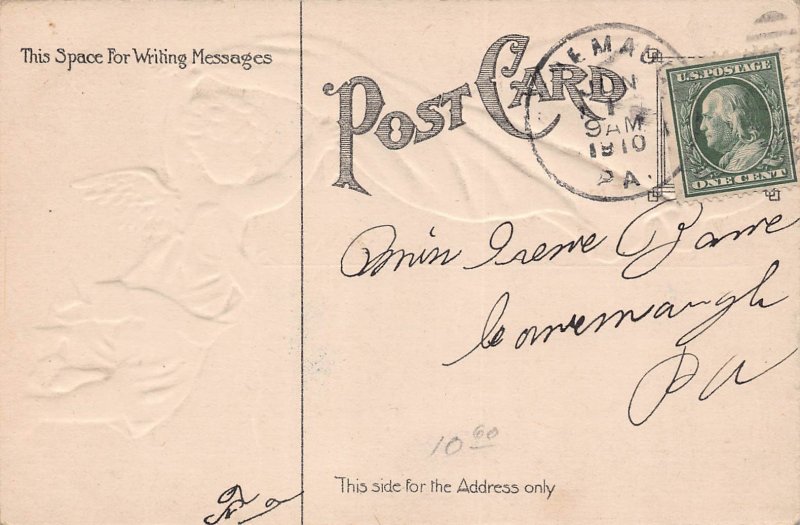 This Space For Writing Messages
POST CARD
JUN
1
9 AM
1910
PA.
U.S. POSTAGE
ONE CENT
Miss Irene
Conemaugh
Pa
10.00
This side for the Address only